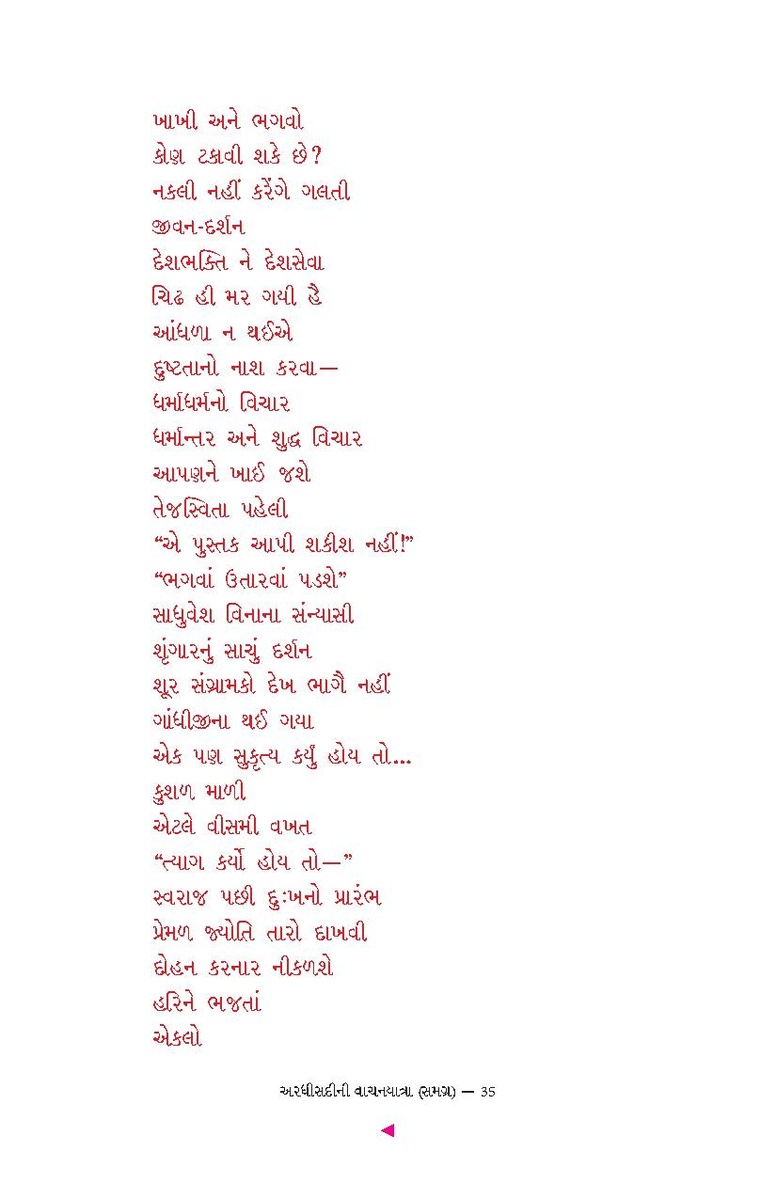 ખાખી અને ભગવો
કોણ ટકાવી શકે છે?
નકલી નહીં કરેંગે ગલતી
જીવન-દર્શન
દેશભક્તિ ને દેશસેવા
ચિઢ હી મર ગયી હૈ
આંધળા ન થઈએ
દુષ્ટતાનો નાશ કરવા—
ધર્માધર્મનો વિચાર
ધર્માન્તર અને શુદ્ધ વિચાર
આપણને ખાઈ જશે
તેજસ્વિતા પહેલી
“એ પુસ્તક આપી શકીશ નહીં!”
“ભગવાં ઉતારવાં પડશે”
સાધુવેશ વિનાના સંન્યાસી
શૃંગારનું સાચું દર્શન
શૂર સંગ્રામકો દેખ ભાગૈ નહીં
ગાંધીજીના થઈ ગયા
એક પણ સુકૃત્ય કર્યું હોય તો...
કુશળ માળી
એટલે વીસમી વખત
“ત્યાગ કર્યો હોય તો—”
સ્વરાજ પછી દુઃખનો પ્રારંભ
પ્રેમળ જ્યોતિ તારો દાખવી
દોહન કરનાર નીકળશે
હરિને ભજતાં
એકલો
અરધીસદીની વાચનયાત્રા (સમગ્ર) — 35